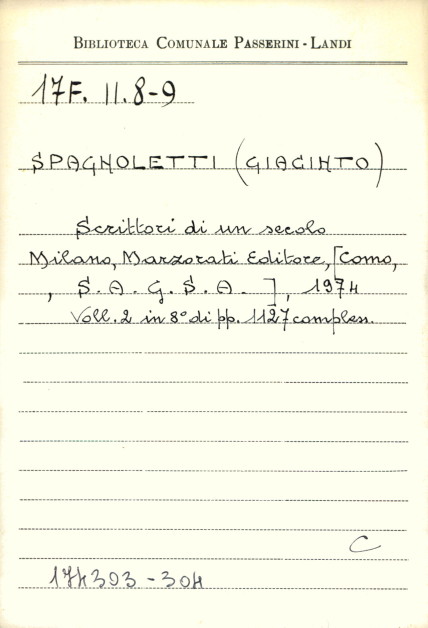 BIBLIOTECA COMUNALE PASSERINI-LANDI
17F. II.8-9
SPAGNOLETTI (GIACINTO)
Scrittori di un secolo
Milano, Marzorati Editore, [Como,
, S.A.G.S.A.], 1974
Voll. 2 in 8° di pp. 1127 comples.
C
174303-304